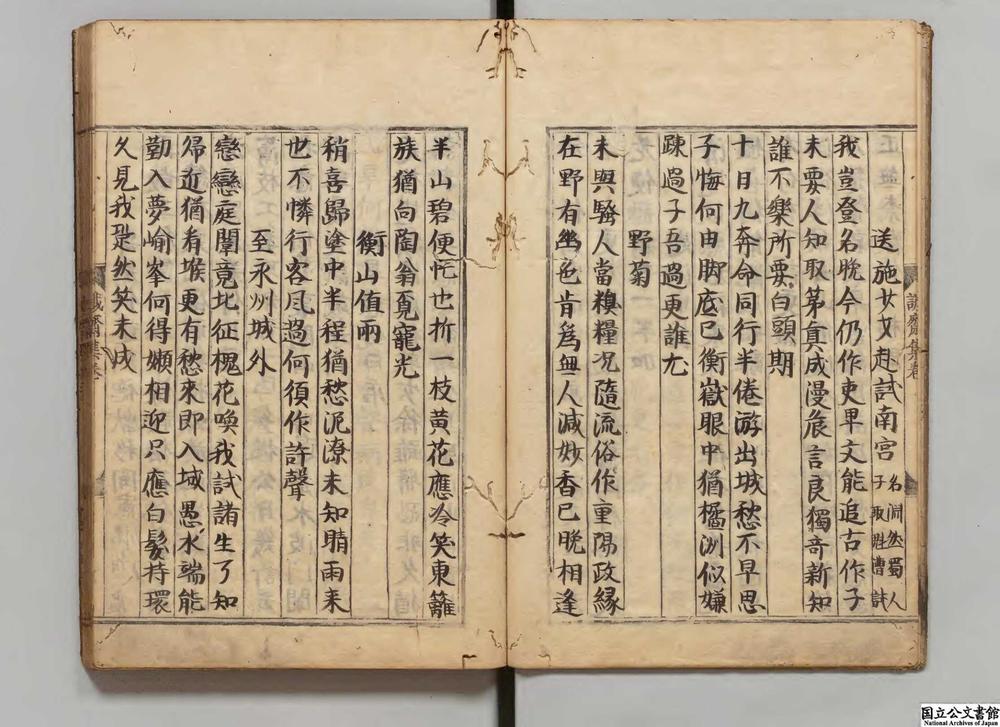 送施少才赴試南宮 名淵然蜀人
我豈登名晚今仍作吏卑文能追古作子
未要人知取第真成漫危言良獨奇新知
誰不樂所要白頭期
十日九奔命同行半倦游出城愁不早思
子悔何由脚底已衡嶽眼中猶橘洲似嫌
踈過子吾過更誰尤
野菊
未與騷人當糗糧况隨流俗作重陽政縁
在野有幽色肯爲無人減妙香已晚相逢
誠齋集卷
半山碧便忙也折一枝黄花應冷笑東籬
族猶向陶翁覓寵光
衡山值雨
稍喜歸塗中半程猶愁泥潦未知晴雨来
也不憐行客風過何須作許聲
至永州城外
戀戀庭闈竟北征槐花喚我試諸生了知
歸近猶看堠更有愁來即入城愚水端能
勤入夢嵛峯何得嬾相迎只應白髮持環
久見我跫然笑未成
誠齋集卷
国立公文書館
National Archives of Japan